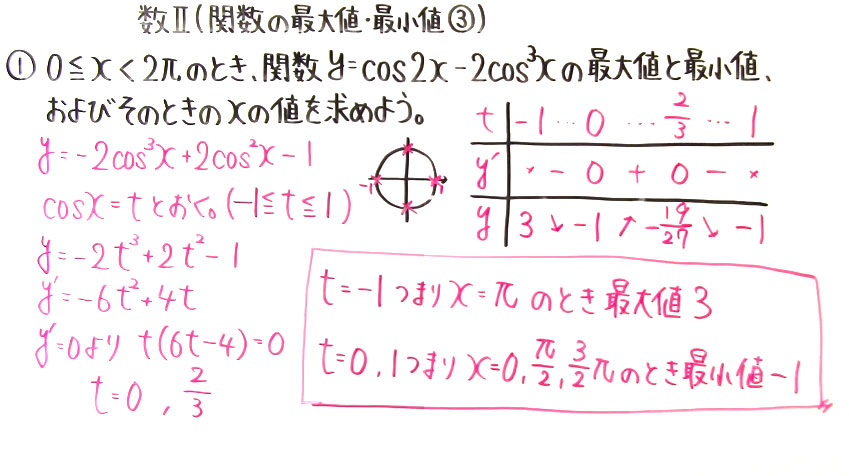 数Ⅱ(関数の最大値・最小値③)
① 0≦x<2πのとき、関数 y=cos2x-2cos³xの最大値と最小値、
およびそのときのxの値を求めよう。
y=-2cos³x+2cos²x-1
cosx=tとおく。(-1≦t≦1)
y=-2t³+2t²-1
y'=-6t²+4t
y'=0より t(6t-4)=0
t=0, 2/3
-1 1
t -1 … 0 … 2/3 … 1
y' × - 0 + 0 - ×
y 3 ↘ -1 ↗ -19/27 ↘ -1
t=-1つまりx=πのとき最大値3
t=0,1つまりx=0,π/2,3/2πのとき最小値-1